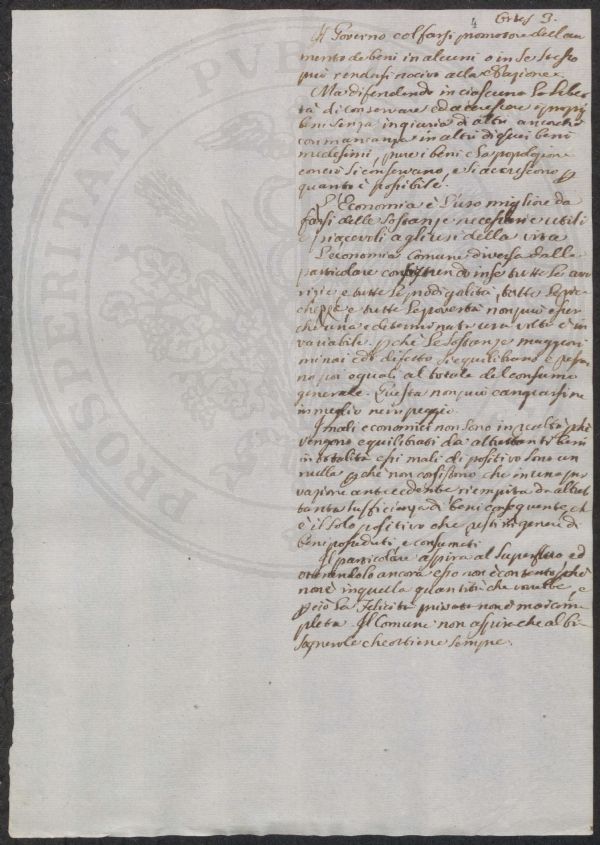 4 Ortes 3.
Il Governo col farsi promotore dell'au
mento de beni in alcuni o in se stesso
può rendersi nocivo alla Nazione.
Ma difendendo in ciascuno la liber
tà di conservare ed accrescere i proprj
beni senza ingiuria di altri ancorchè
con mancanza in altri di quei beni
medesimi, pure i beni e la popolazione
così si conservano, e si accrescono
quanto è possibile.
L'Economia è l'uso migliore da
farsi delle sostanze necessarie utili
e piacevoli agli usi della vita
L'economia comune diversa dalla
particolare consistendo in se tutte le ava
rizie e tutte le prodigalità, tutte le ric
chezze e tutte le povertà non può esser
che una e determinata una volta è in
variabile. pchè le sostanze maggiori
minori ed i difetto si equilibrano e
no poi eguali al totale del consumo
generale. Questa non può cangiarsi ne
in meglio ne in peggio.
I mali economici non sono in realtà pchè
vengono equilibrati da altrettanti beni
in totalità essi mali di positivo sono un
nulla pchè non consistono che in una pri
vazione antecedente riempita da altret
tanta sufficienza di beni conseguente, ch
è il solo positivo che resti in genere di
beni posseduti e consumati
Il particolare aspira al superfluo ed
ottenendolo ancora esso non è contento, pchè
non è in quella quantità che vorebbe, e
pciò la Felicità privata non è mai com
pleta. Il Comune non aspira che al bi
sognevole che ottiene sempre.
PROSPERITATI PUB